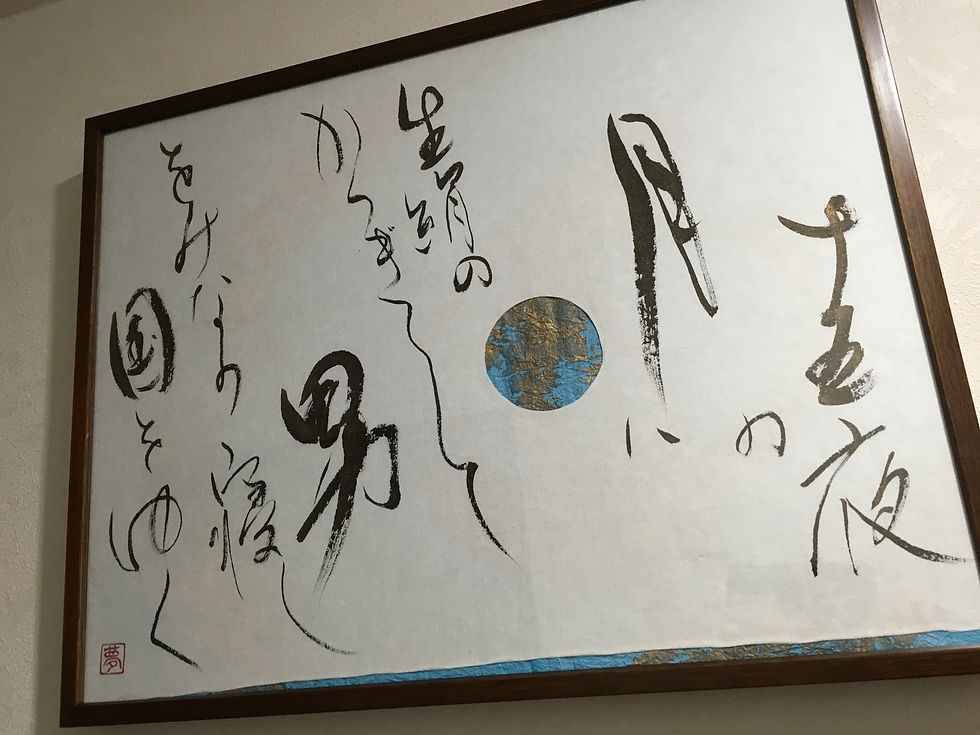 十五夜の
月に
生絹の
かつぎして
男
をみなの寝し
国をゆく
夢